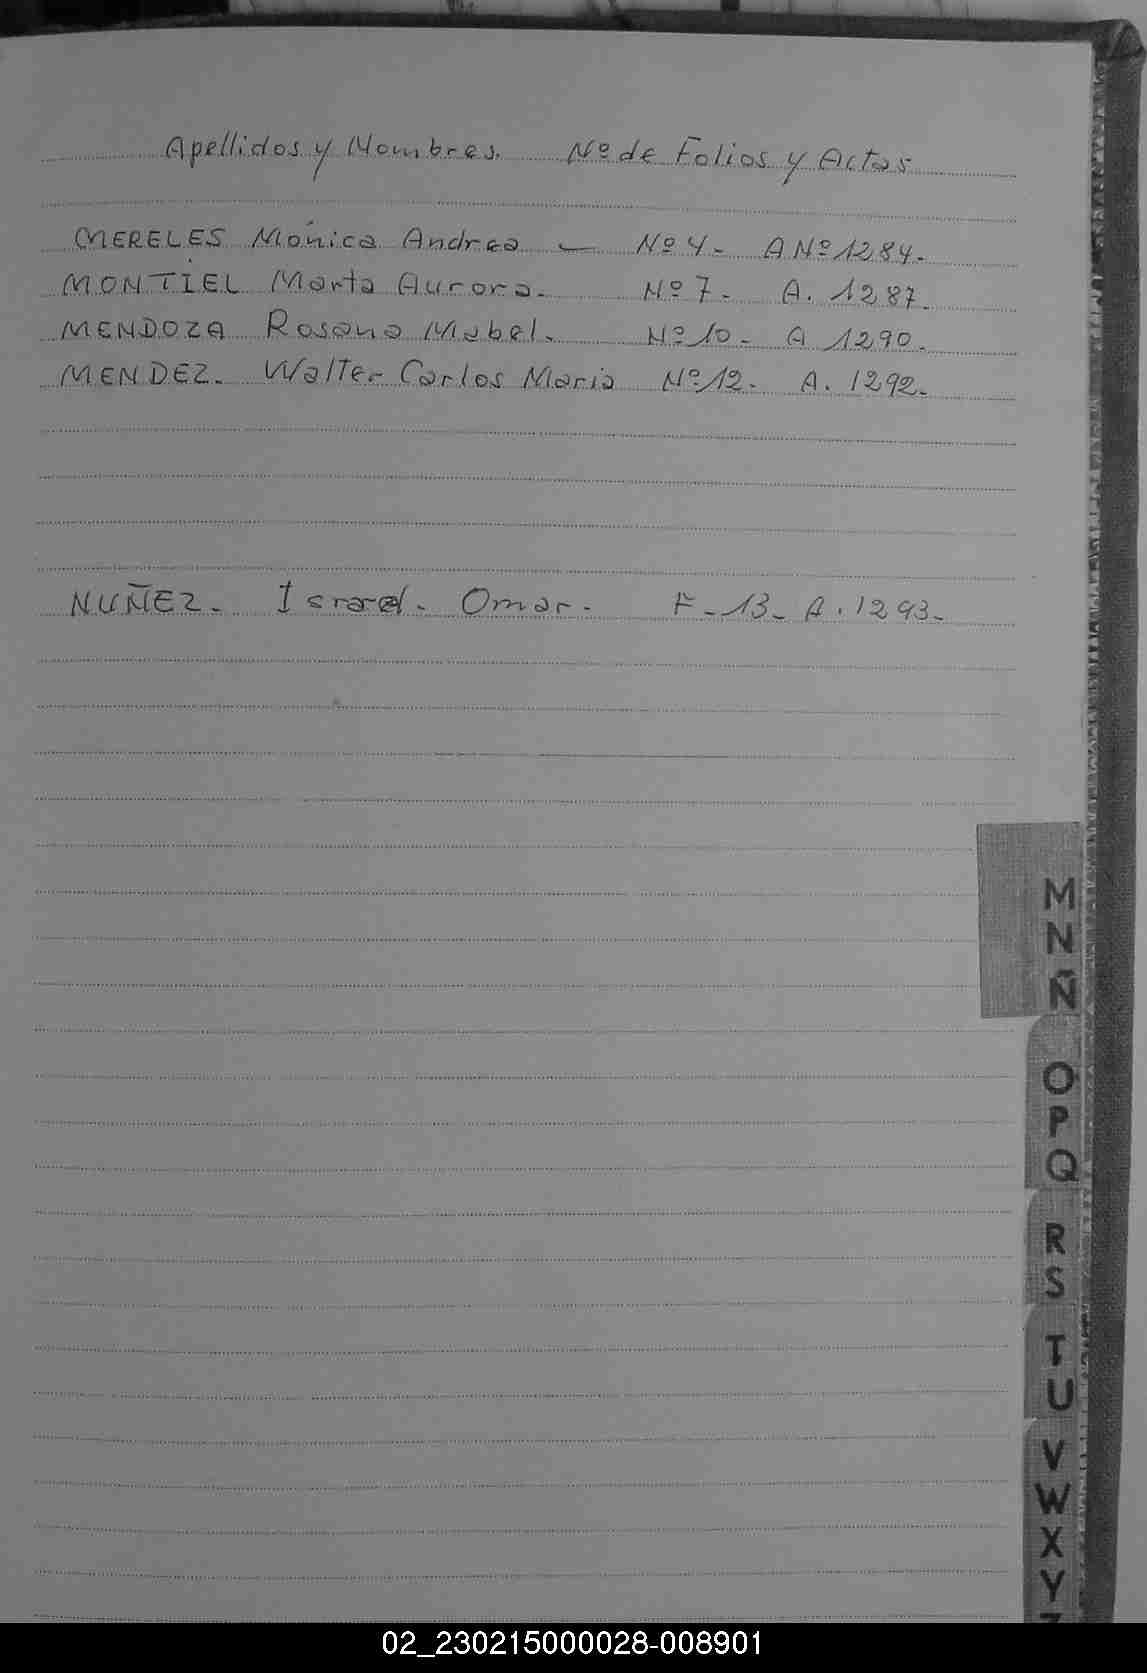 Apellidos y Nombres. Nº de Folios y Actas
MERELES Mónica Andrea — Nº 4 - A Nº 1284.
MONTIEL Marta Aurora. Nº 7 - A. 1287.
MENDOZA Rosana Mabel. Nº 10 - A 1290.
MENDEZ. Walter Carlos Maria Nº 12. A. 1292.
NUÑEZ. Israel. Omar. F - 13 - A. 1293.
M
N
Ñ
O
P
Q
R
S
T
U
V
W
X
Y
Z
02_230215000028-008901